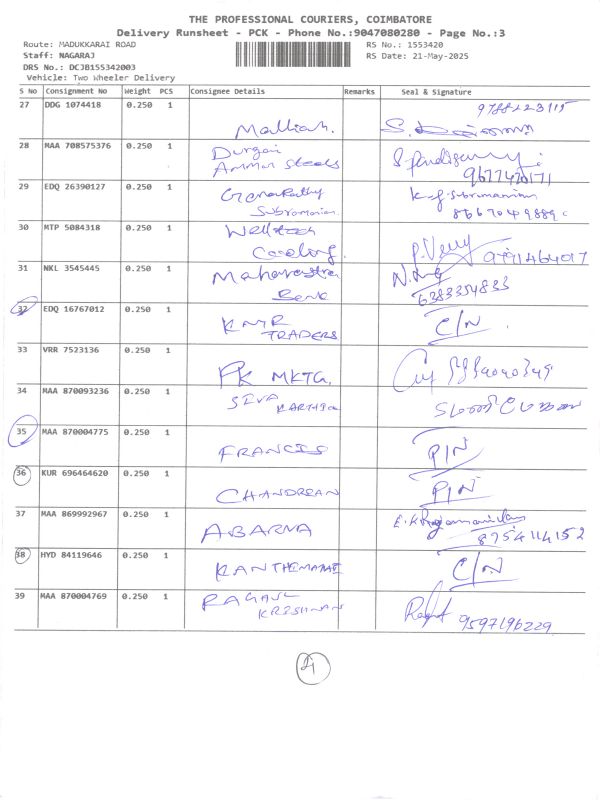 THE PROFESSIONAL COURIERS, COIMBATORE
Delivery Runsheet - PCK - Phone No.:9047080280 - Page No.:3
Route: MADUKKARAI ROAD RS No.: 1553420
Staff: NAGARAJ RS Date: 21-May-2025
DRS No.: DCJB155342003
Vehicle: Two Wheeler Delivery
S No Consignment No Weight PCS Consignee Details Remarks Seal & Signature
27 DDG 1074418 0.250 1 9788223115
28 MAA 708575376 0.250 1 Durgai
Amman Steels 9677420171
29 EDQ 26390127 0.250 1
Subramanian
30 MTP 5084318 0.250 1 Welltech
Cooling
31 NKL 3545445 0.250 1 Maharastra
Bank 6383354833
32 EDQ 16767012 0.250 1 KMR
TRADERS C/N
33 VRR 7523136 0.250 1 PK MKTG.
34 MAA 870093236 0.250 1 SIVA
KARTHICK
35 MAA 870004775 0.250 1 FRANCIS P/N
36 KUR 696464620 0.250 1 CHANDRAN P/N
37 MAA 869992967 0.250 1 ABARNA
8754114152
38 HYD 84119646 0.250 1 KANTHIMATHI C/N
39 MAA 870004769 0.250 1 RAGAUL
KRISHNAN 9597196229